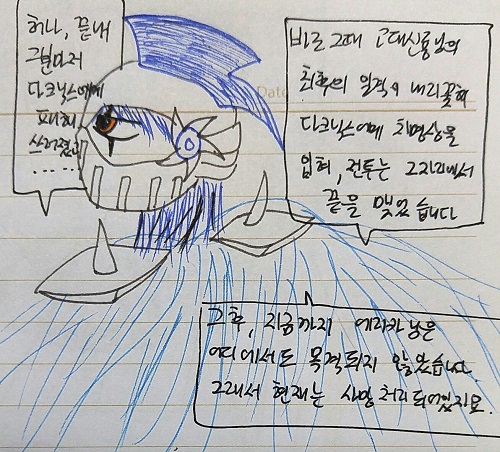 허나, 끝내
그분마저
다크닉스에게
패해
쓰러졌고
......
바로 그때 고대신룡님의
최후의 일격이 내리꽂혀
다크닉스에게 치명상을
입혀, 전투는 그자리에서
끝을 맺었습니다
그후, 지금까지 에리카님은
어디에서도 목격되지 않았습니다.
그래서 현재는 사망 처리되어있지요.
Date